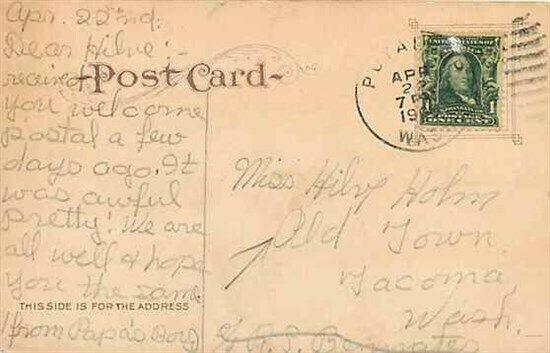 Apr. 22nd.
Dear Hilve:-
received
Post Card
you welcome
postal a few
days ago. It
was awful
pretty! We are
all well & hope
you the same
THIS SIDE IS FOR THE ADDRESS
from Papa's Boy
APR
22
7 PM
19
WASH
Miss Hilve Holm
Old Town
Tacoma,
Wash.